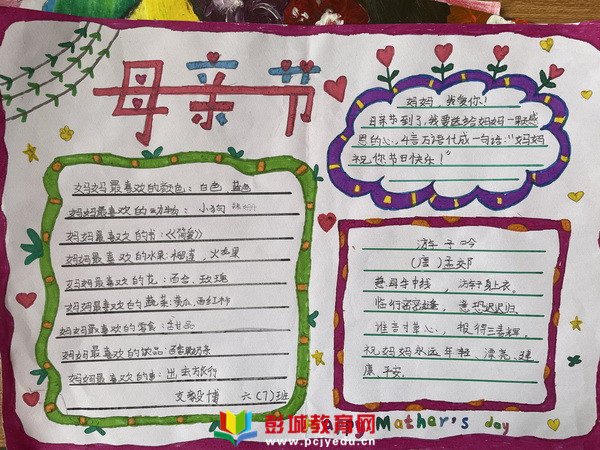 母亲节
妈妈，我爱你！
母亲节到了，我要送给妈妈一颗感
恩的心，千言万语化成一句话："妈妈
祝你节日快乐！"
妈妈最喜欢的颜色：白色 蓝色
妈妈最喜欢的动物：小狗
妈妈最喜欢的书：《简爱》
妈妈最喜欢的水果：榴莲，火龙果
妈妈最喜欢的花：百合，玫瑰
妈妈最喜欢的蔬菜：黄瓜，西红柿
妈妈最喜欢的零食：
妈妈最喜欢的饮品：奶茶
妈妈最喜欢的事：出去旅行
文毅博 六(7)班
游子吟
(唐)孟郊
慈母手中线，游子身上衣。
临行密密缝，意恐迟迟归。
谁言寸草心，报得三春辉。
祝妈妈永远年轻、漂亮、健
康、平安。
Mother's day
彭城教育网
www.pcjyedu.cn